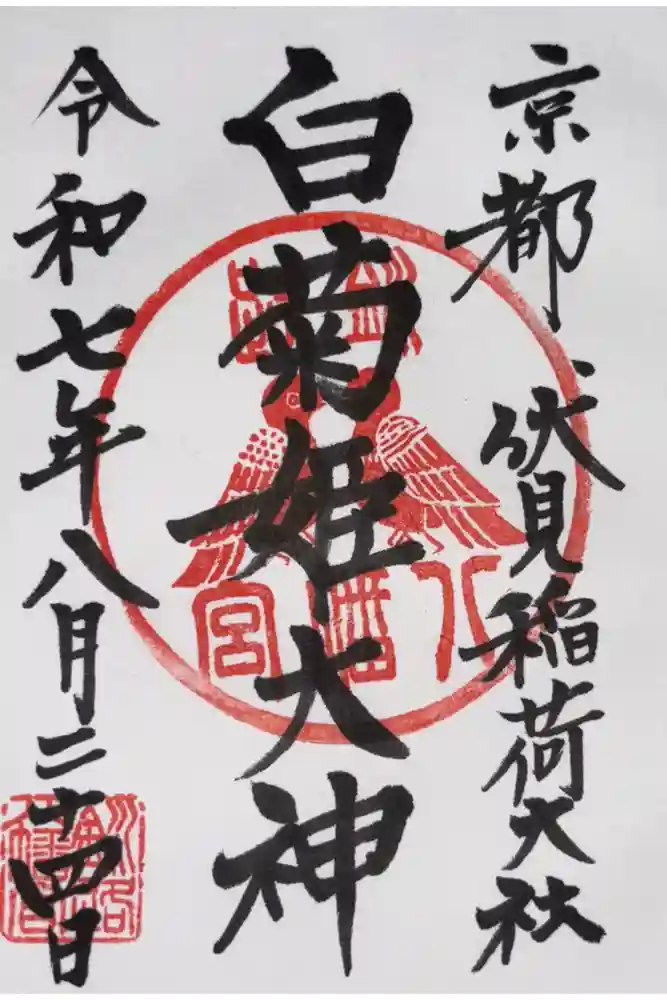 京都 伏見稲荷大社
白菊姫大神
令和七年八月二十四日
八幡宮